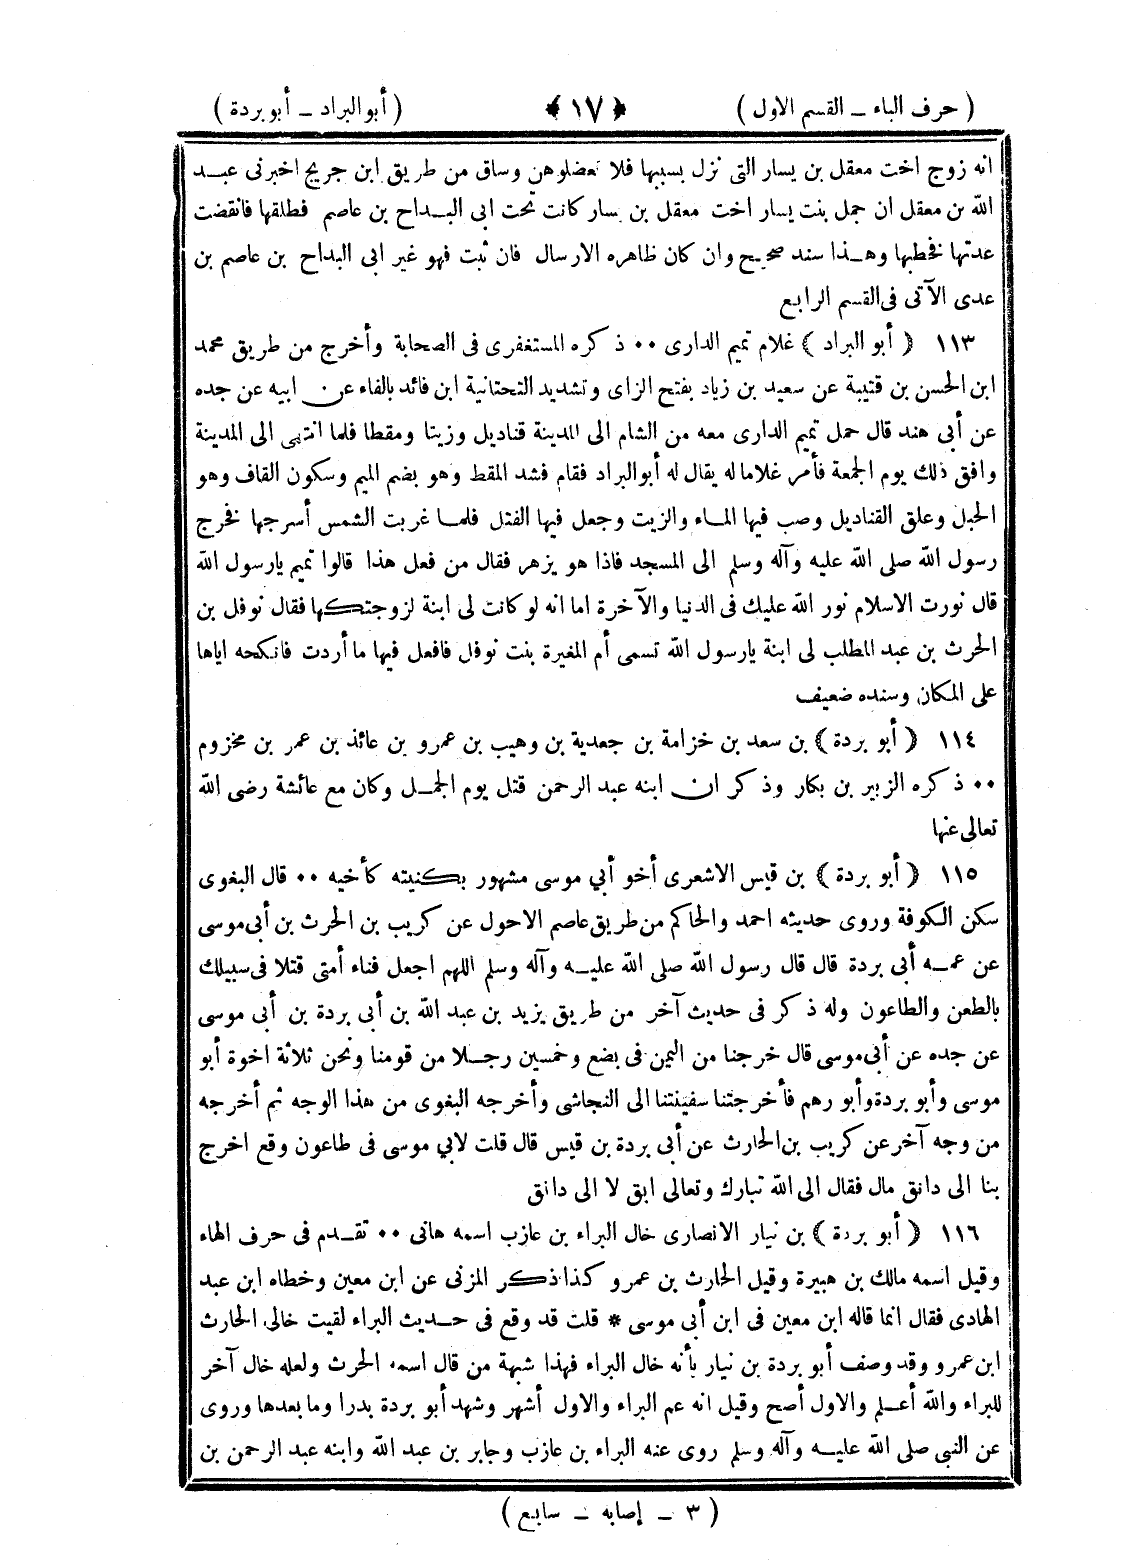 ( حرف الباء ــ القسم الاول ) ﴿ ١٧ ﴾ ( أبو البراد ــ أبو بردة )
انه زوج اخت معقل بن يسار التى نزل بسببها فلا تعضلوهن وساق من طريق ابن جريج اخبرنى عبد
الله بن معقل ان جمل بنت يسار اخت معقل بن يسار كانت تحت ابى البداح بن عاصم فطلقها فانقضت
عدتها فخطبها وهذا سند صحيح وان كان ظاهره الارسال فان ثبت فهو غير ابى البداح بن عاصم بن
عدى الآتى فى القسم الرابع
١١٣ ﴿ أبو البراد ﴾ غلام تميم الدارى ٠٠ ذكره المستغفرى فى الصحابة وأخرج من طريق محمد
ابن الحسن بن قتيبة عن سعيد بن زياد بفتح الزاى وتشديد التحتانية ابن فائد بالفاء عن ابيه عن جده
عن أبى هند قال حمل تميم الدارى معه من الشام الى المدينة قناديل وزيتا ومقطا فلما انتهى الى المدينة
وافق ذلك يوم الجمعة فأمر غلاما له يقال له أبو البراد فقام فشد المقط وهو بضم الميم وسكون القاف وهو
الحبل وعلق القناديل وصب فيها الماء والزيت وجعل فيها الفتل فلما غربت الشمس أسرجها فخرج
رسول الله صلى الله عليه وآله وسلم الى المسجد فاذا هو يزهر فقال من فعل هذا قالوا تميم يارسول الله
قال نورت الاسلام نور الله عليك فى الدنيا والآخرة اما انه لو كانت لى ابنة لزوجتكها فقال نوفل بن
الحرث بن عبد المطلب لى ابنة يارسول الله تسمى أم المغيرة بنت نوفل فافعل فيها ما أردت فانكحه اياها
على المكان وسنده ضعيف
١١٤ ﴿ أبو بردة ﴾ بن سعد بن خزامة بن جعدية بن وهيب بن عمرو بن عائذ بن عمر بن مخزوم
٠٠ ذكره الزبير بن بكار وذكر ان ابنه عبد الرحمن قتل يوم الجمل وكان مع عائشة رضى الله
تعالى عنها
١١٥ ﴿ أبو بردة ﴾ بن قيس الاشعرى أخو أبي موسى مشهور بكنيته كأخيه ٠٠ قال البغوى
سكن الكوفة وروى حديثه احمد والحاكم من طريق عاصم الاحول عن كريب بن الحرث بن أبى موسى
عن عمه أبى بردة قال قال رسول الله صلى الله عليه وآله وسلم اللهم اجعل فناء أمتى قتلا فى سبيلك
بالطعن والطاعون وله ذكر فى حديث آخر من طريق يزيد بن عبد الله بن أبى بردة بن أبى موسى
عن جده عن أبى موسى قال خرجنا من اليمن فى بضع وخمسين رجلا من قومنا ونحن ثلاثة اخوة أبو
موسى وأبو بردة وأبو رهم فأخرجتنا سفينتنا الى النجاشى وأخرجه البغوى من هذا الوجه ثم أخرجه
من وجه آخر عن كريب بن الحارث عن أبى بردة بن قيس قال قلت لابي موسى فى طاعون وقع اخرج
بنا الى دانق مال فقال الى الله تبارك وتعالى ابق لا الى دانق
١١٦ ﴿ أبو بردة ﴾ بن نيار الانصارى خال البراء بن عازب اسمه هانى ٠٠ تقدم فى حرف الهاء
وقيل اسمه مالك بن هبيرة وقيل الحارث بن عمرو كذا ذكر المزنى عن ابن معين وخطاه ابن عبد
الهادى فقال انما قاله ابن معين فى ابن أبى موسى * قلت قد وقع فى حديث البراء لقيت خالى الحارث
ابن عمرو وقد وصف أبو بردة بن نيار بأنه خال البراء فهذا شبهة من قال اسمه الحرث ولعله خال آخر
للبراء والله أعلم والاول أصح وقيل انه عم البراء والاول أشهر وشهد أبو بردة بدرا وما بعدها وروى
عن النبى صلى الله عليه وآله وسلم روى عنه البراء بن عازب وجابر بن عبد الله وابنه عبد الرحمن بن
( ٣ ــ إصابه ــ سابع )